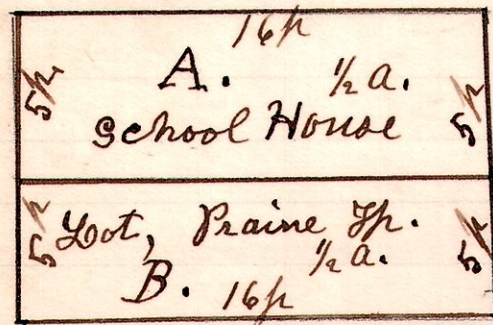 16p
A. ½ a.
5p
School House
5p
5p
Lot, Prairie Tp.
½ a.
5p
B. 16p